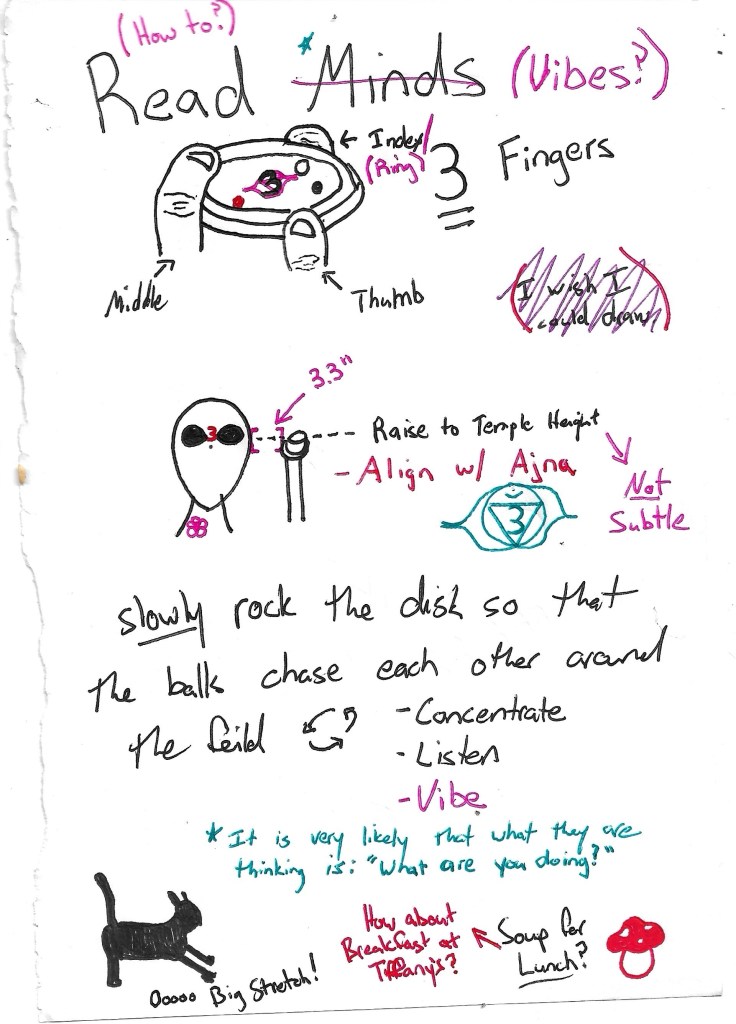 (How to?)
Read *Minds (Vibes?)
Index/
(Ring)
3 Fingers
3
Middle
Thumb
(I wish I
could draw)
3.3"
3
Raise to Temple Height
- Align w/ Ajna
Not
Subtle
3
slowly rock the disk so that
the balls chase each other around
the feild
- Concentrate
- Listen
- Vibe
* It is very likely that what they are
thinking is: "What are you doing?"
How about
Breakfast at
Tiffany's?
Soup for
Lunch?
Ooooo Big Stretch!